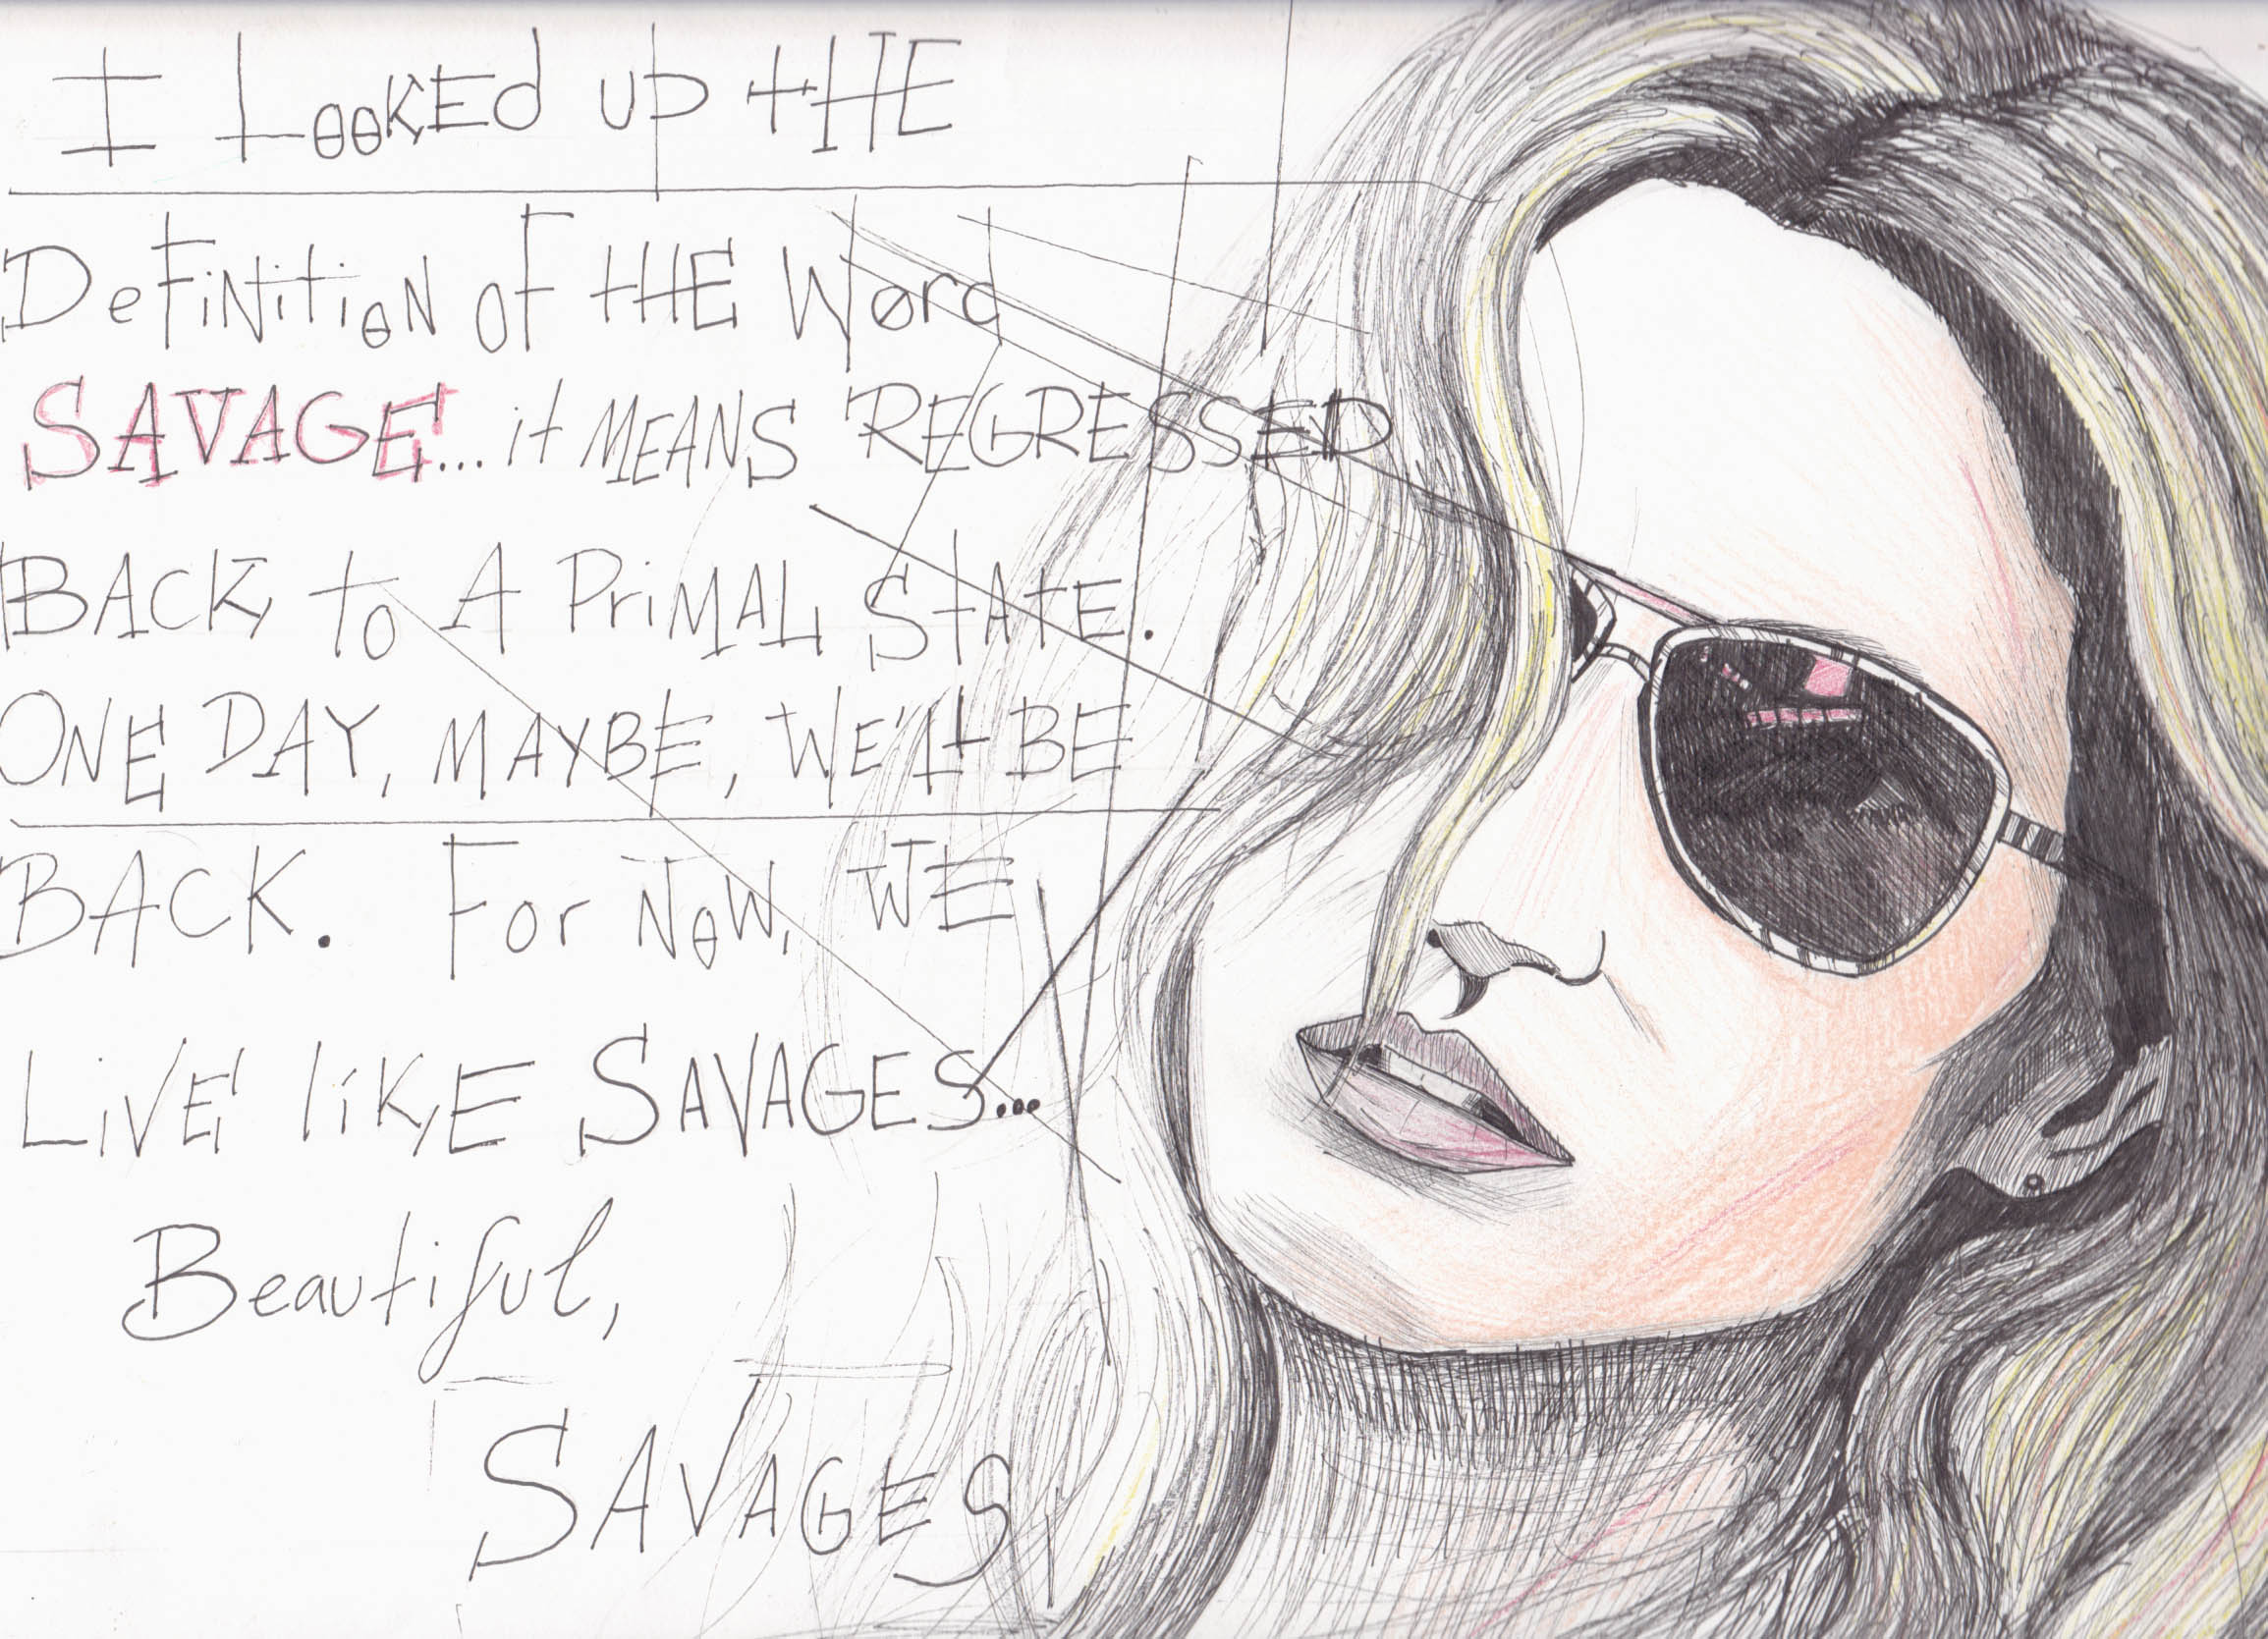 I LooKEd uP tHE
DeFiNitioN oF tHE Word
SAVAGE... it MEANS REGRESSED
BACK to A PriMAL StAtE.
ONE DAY, MAYBE, WE'll BE
BACK. For NoW, WE
LiVE liKE SAVAGES...
Beautiful,
SAVAGES.